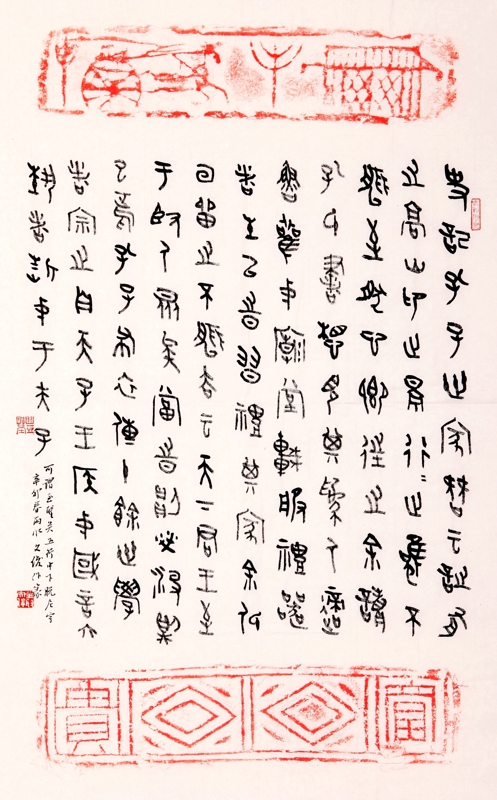 史記孔子世家贊云詩有
之高山卬止景行=止雖不
能至然心鄉往之余讀
孔氏書想見其為人適
魯觀中廟堂車服禮器
者生以時習禮其家余低
回留之不能去云天下君王至
于賢人眾矣當時則榮沒則
已焉孔子布衣傳十餘世學
者宗之自天子王侯中國言六
藝者折中于夫子
可謂至聖矣五行中下脱尼字
辛卯春雨水
富貴